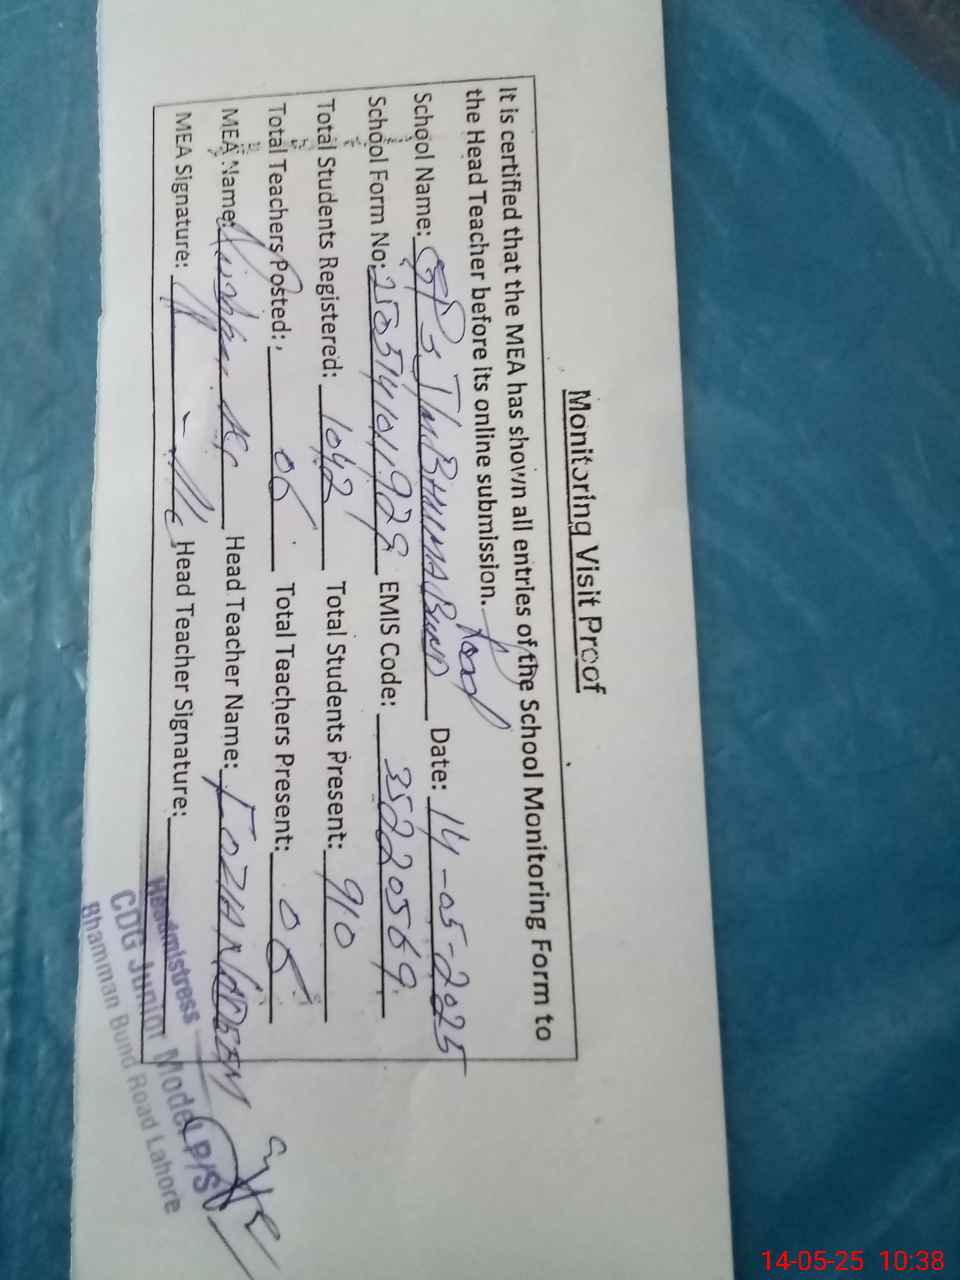 Monitoring Visit Proof
It is certified that the MEA has shown all entries of the School Monitoring Form to
the Head Teacher before its online submission. Road
School Name: GPS BHMMA BUND Date: 14-05-2025
School Form No: 250514101928 EMIS Code: 35220569
Total Students Registered: 1042 Total Students Present: 910
Total Teachers Posted: 06 Total Teachers Present: 06
MEA Name: Head Teacher Name: FOZIA NADEEM
MEA Signature: Head Teacher Signature:
Headmistress
CDG Junior Model P/S
Bhamman Bund Road Lahore
14-05-25 10:38